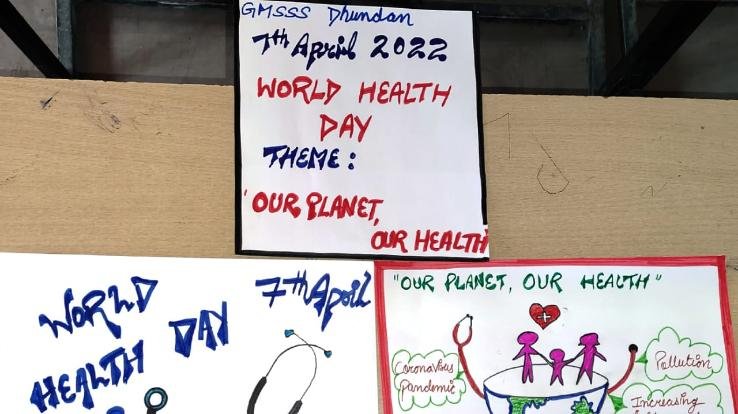 GMSSS Dhundan
7th April 2022
WORLD HEALTH
DAY
THEME:
'OUR PLANET,
OUR HEALTH'
WORLD
HEALTH DAY
7th April
"OUR PLANET, OUR HEALTH"
Coronavirus
Pandemic
Pollution
Increasing